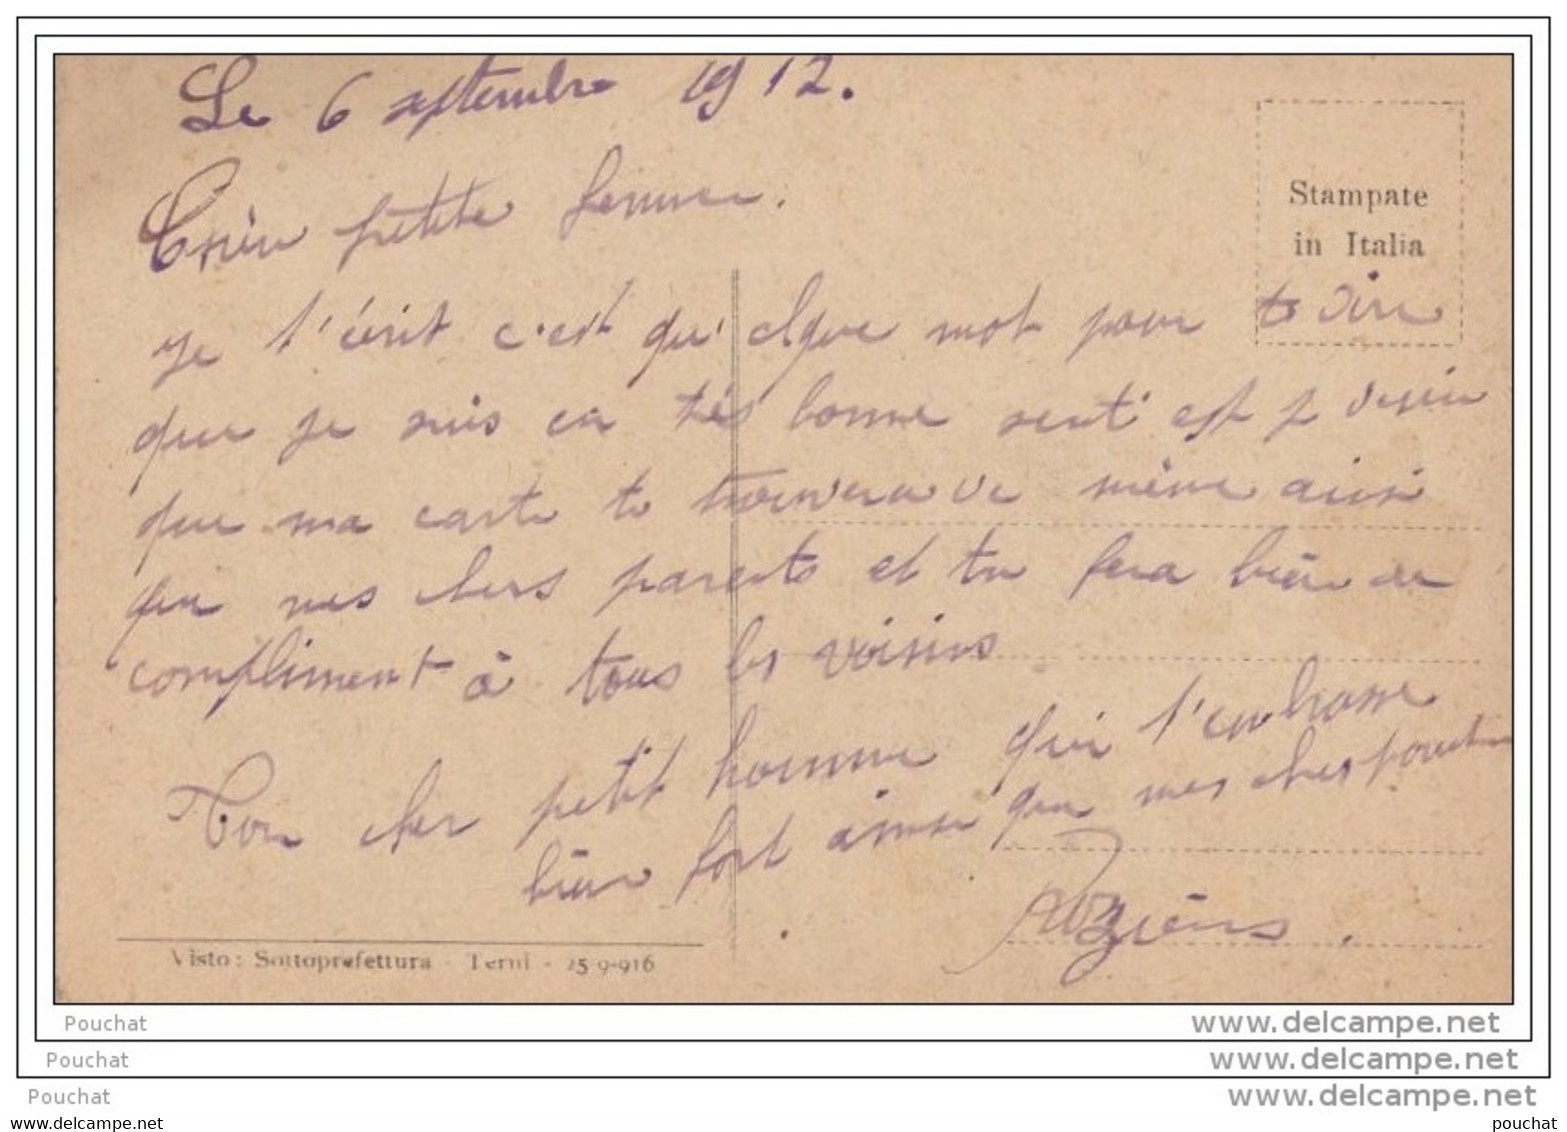 Le 6 septembre 1912.
Chèr petite femme.
Stampate
in Italia
je t'écrit c'est qu'elque mot pour te dire
que je suis en trés bonne senté est j'
que ma carte te trouvera de même aisi
que mes chers parents et tu fera bien de
compliment à tous les voisins
Ton cher petit homme qui t'enbrasse
bien fort ainsi que mes cher parents
Visto: Sottoprefettura - Terni - 25-9-916
Pouchat
www.delcampe.net
Pouchat
www.delcampe.net
Pouchat
www.delcampe.net
www.delcampe.net
pouchat